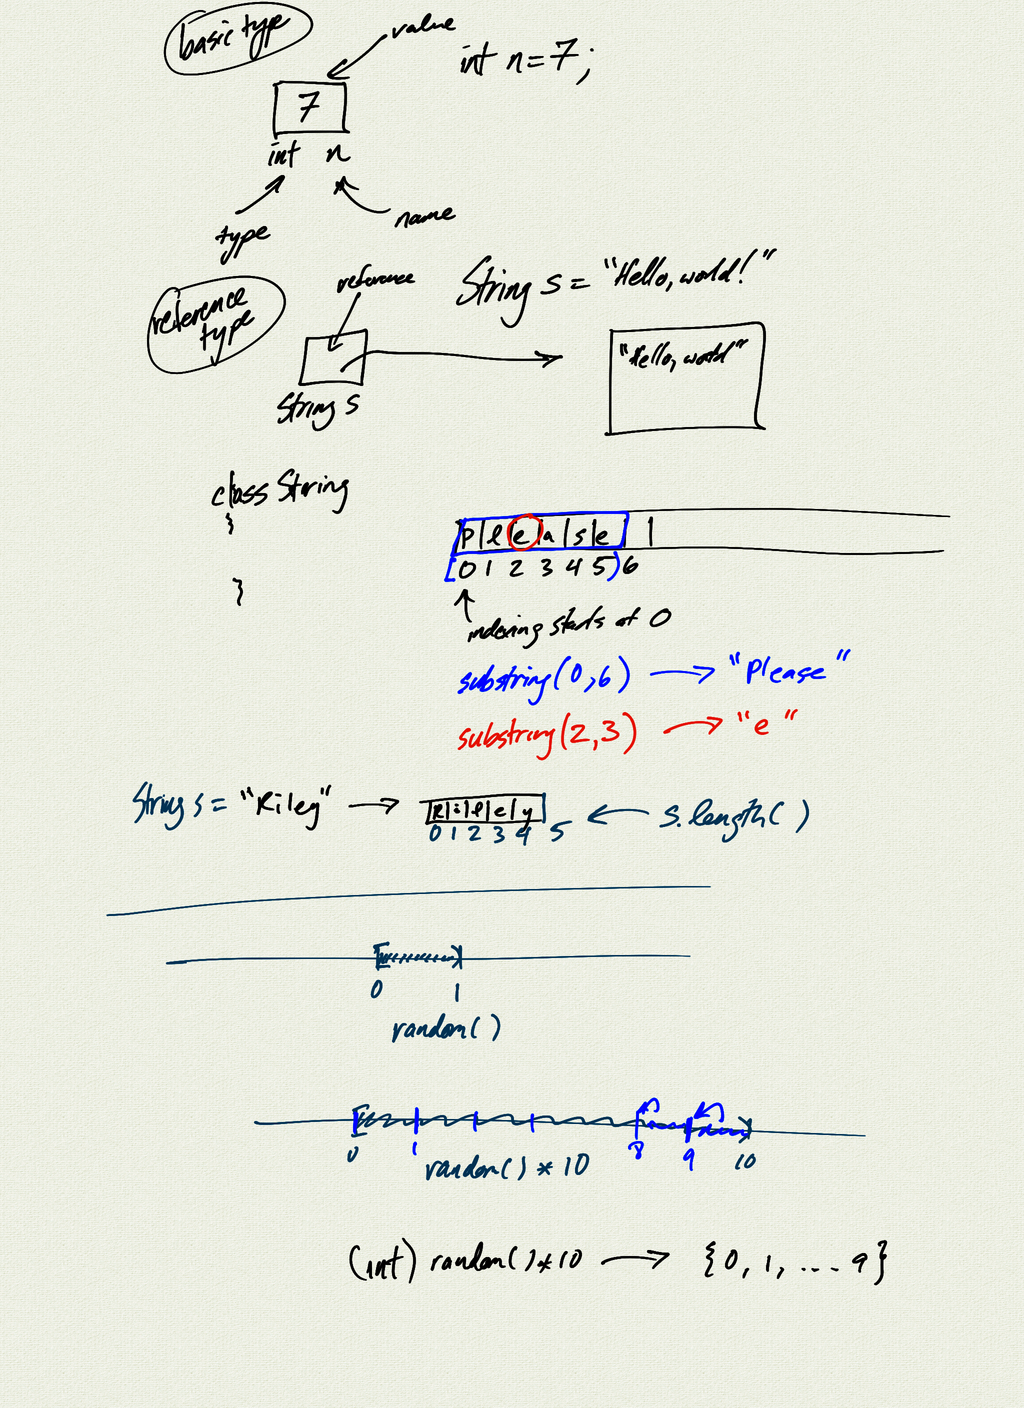 basic type
value
int n = 7;
7
int n
type
name
reference type
reference
String s = "Hello, world!"
"Hello, world"
String s
class String
{
}
p|l|e|a|s|e| |
[0 1 2 3 4 5)6
indexing starts at 0
substring(0,6) → "Please"
substring(2,3) → "e"
String s = "Riley" → R|i|l|e|y
0 1 2 3 4 5 ← s.length( )
0 1
random( )
0 1 8 9 10
random( ) * 10
(int) random( ) * 10 → {0, 1, ... 9}